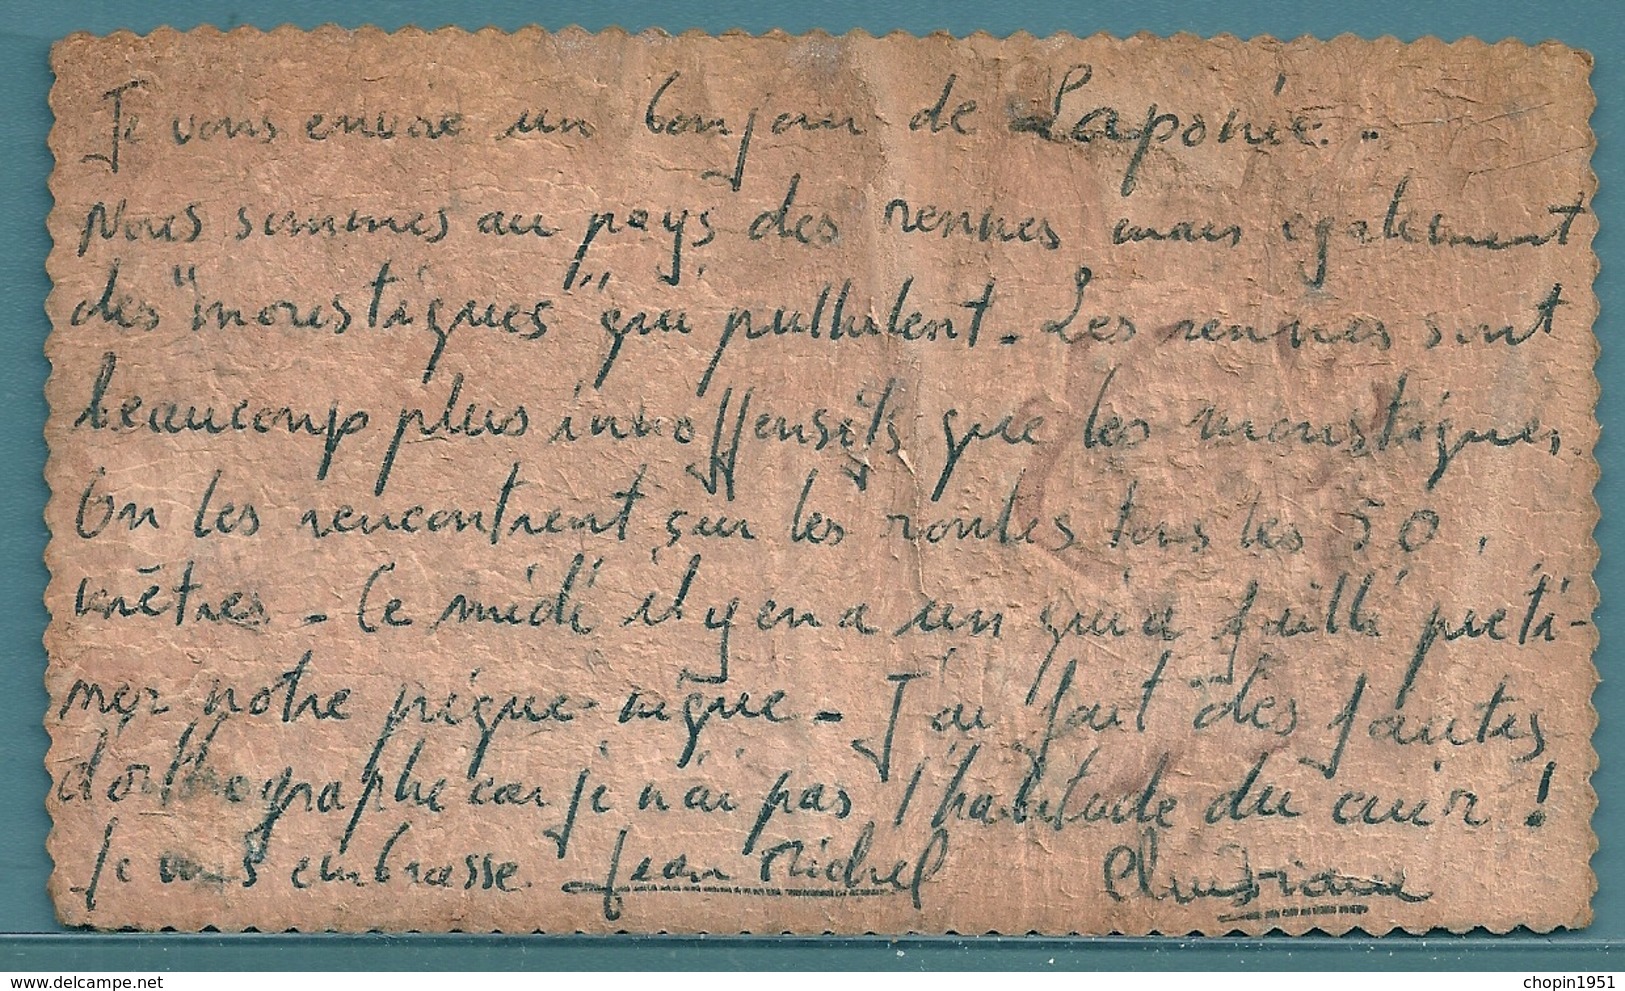 Je vous envoie un bonjour de Laponie.-
Nous sommes au pays des rennes mais également
des "moustiques" qui pullulent - Les rennes sont
beaucoup plus innoffensifs que les moustiques.
On les rencontrent sur les routes tous les 50
mètres - Ce midi il y en a un qui a failli piéti-
ner notre pique-nique - J'ai fait des fautes
d'orthographe car je n'ai pas l'habitude du cuir !
Je vous embrasse Jean Michel Christiane
chopin1951